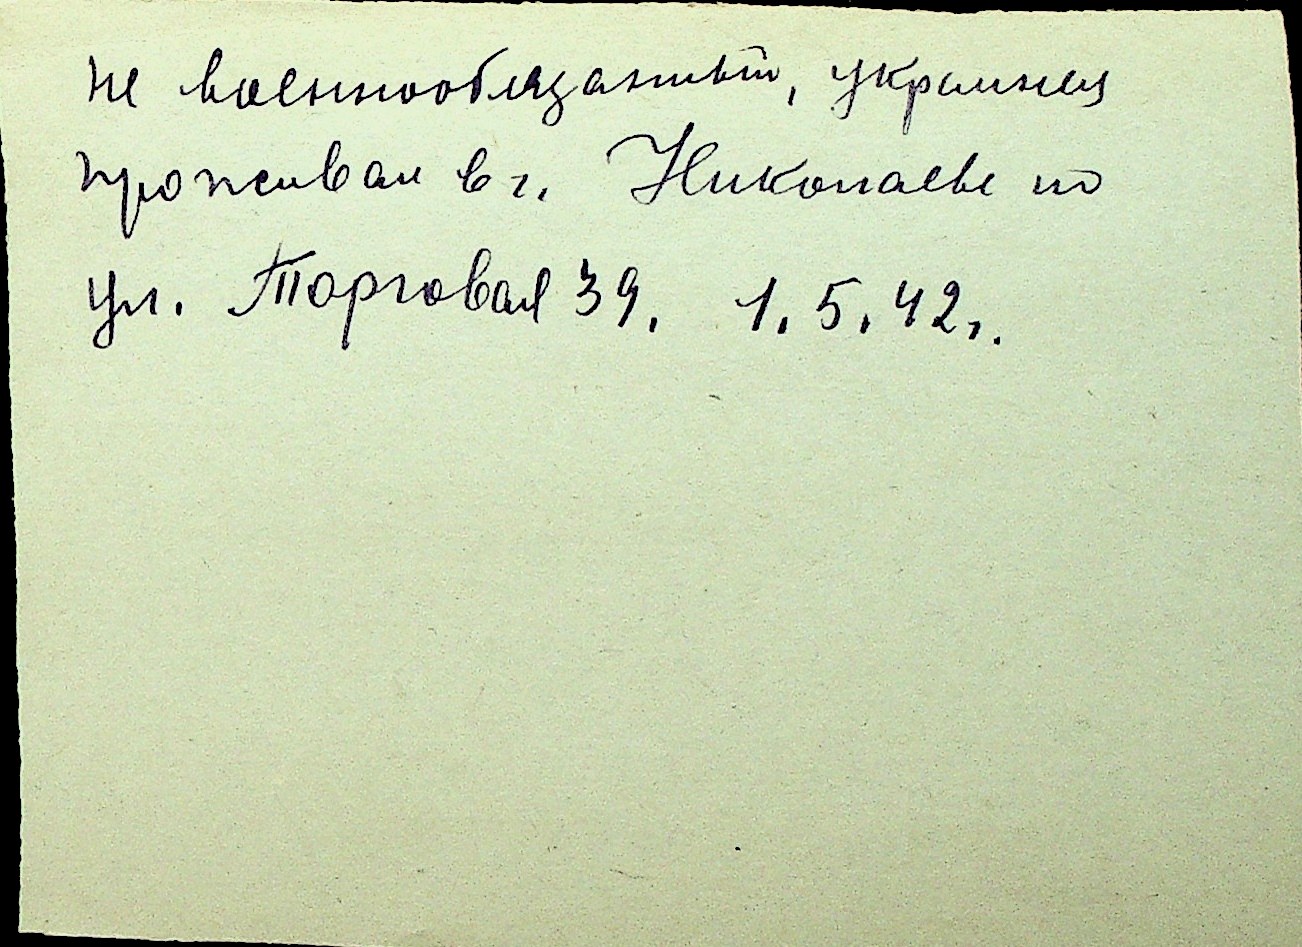 не военнообязанный, украинец
проживал в г. Николаеве по
ул. Торговая 39. 1.5.42г.